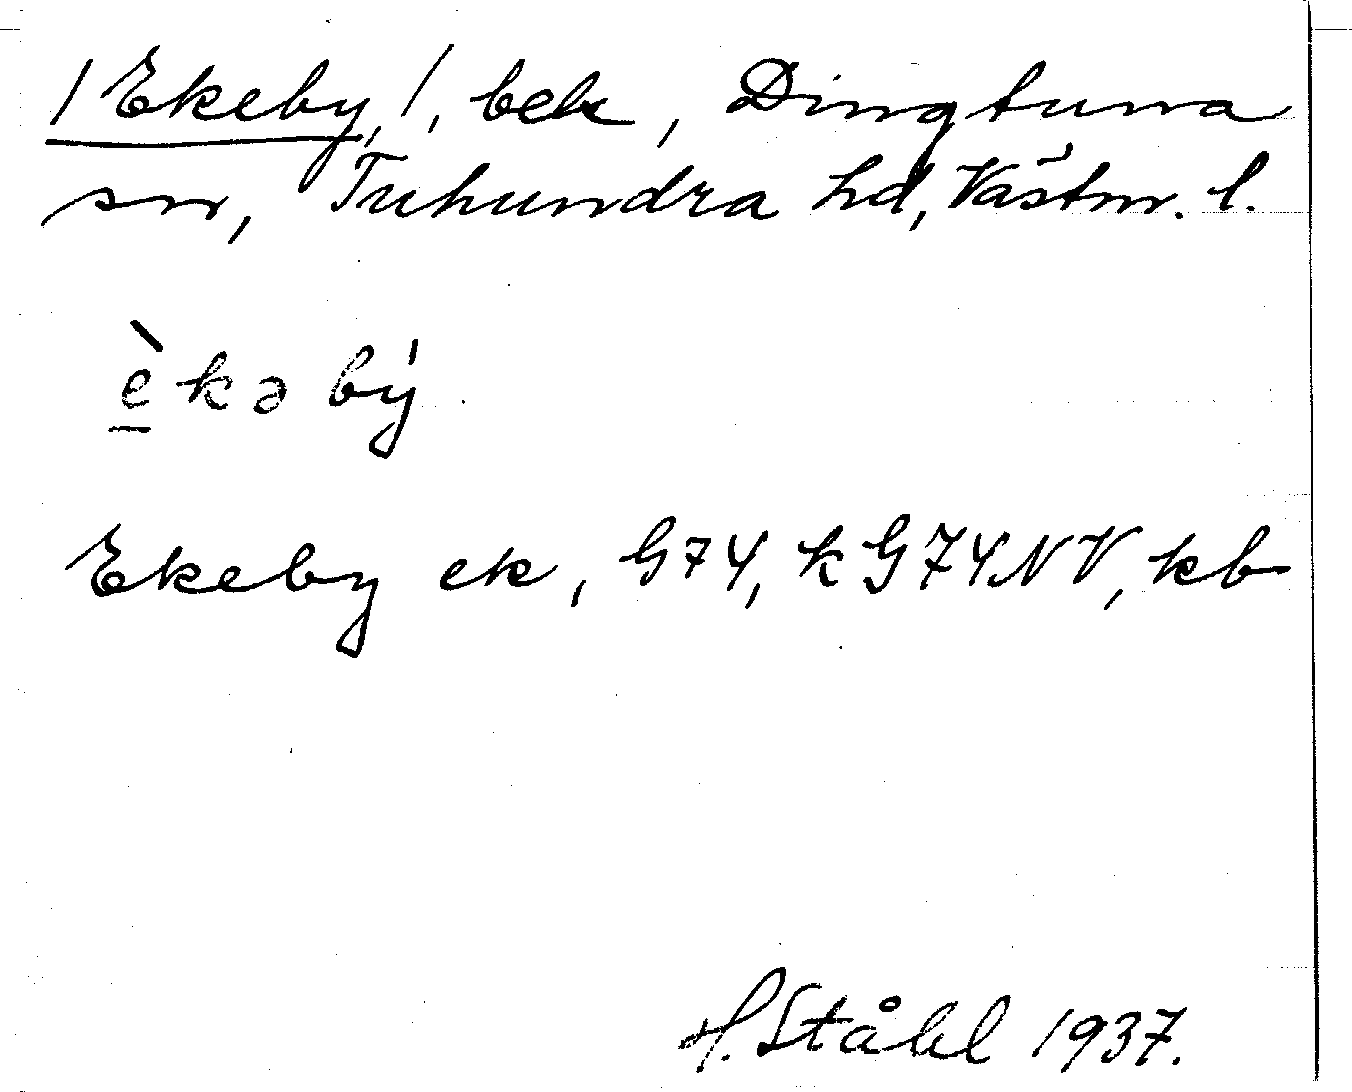 /Ekeby,/, bek, Dingtuna
sn, Tuhundra hd, Västm. l.
èkəbý
Ekeby ek, G74, k G74NV, kb
H. Ståhl 1937.